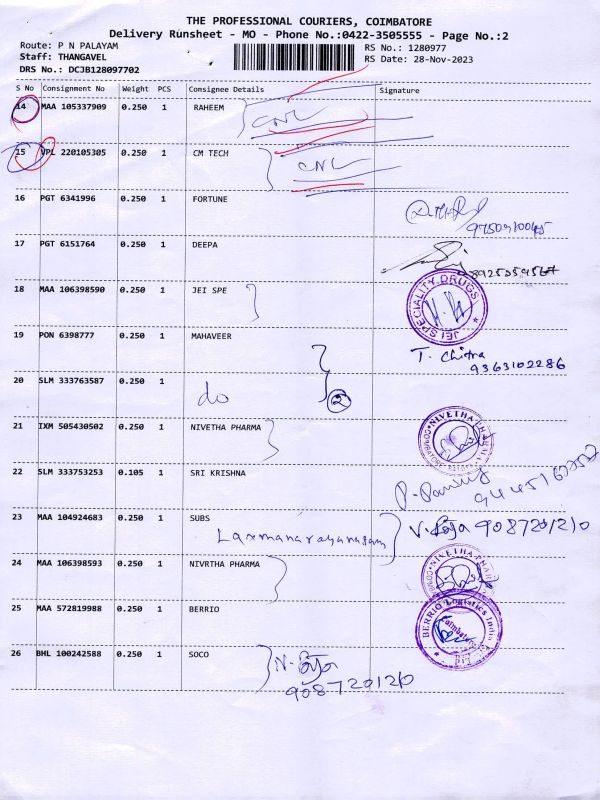 THE PROFESSIONAL COURIERS, COIMBATORE
Delivery Runsheet - MO - Phone No.:0422-3505555 - Page No.:2
Route: P N PALAYAM
RS No.: 1280977
Staff: THANGAVEL
RS Date: 28-Nov-2023
DRS No.: DCJB128097702
S No Consignment No Weight PCS Consignee Details Signature
14 MAA 105337909 0.250 1 RAHEEM
CNL
15 VPL 220105305 0.250 1 CM TECH
CNL
16 PGT 6341996 0.250 1 FORTUNE
17 PGT 6151764 0.250 1 DEEPA
18 MAA 106398590 0.250 1 JEI SPE
JEI SPECIALITY DRUGS
19 PON 6398777 0.250 1 MAHAVEER
T. Chitra
9363102286
20 SLM 333763587 0.250 1 do
2
21 IXM 505430502 0.250 1 NIVETHA PHARMA
NIVETHA PHARMA
22 SLM 333753253 0.105 1 SRI KRISHNA
23 MAA 104924683 0.250 1 SUBS
Laxmanarayanasam
9087201210
24 MAA 106398593 0.250 1 NIVRTHA PHARMA
NIVETHA PHARMA
25 MAA 572819988 0.250 1 BERRIO
BERRIO Logistics India
Coimbatore
26 BHL 100242588 0.250 1 SOCO
9087201210